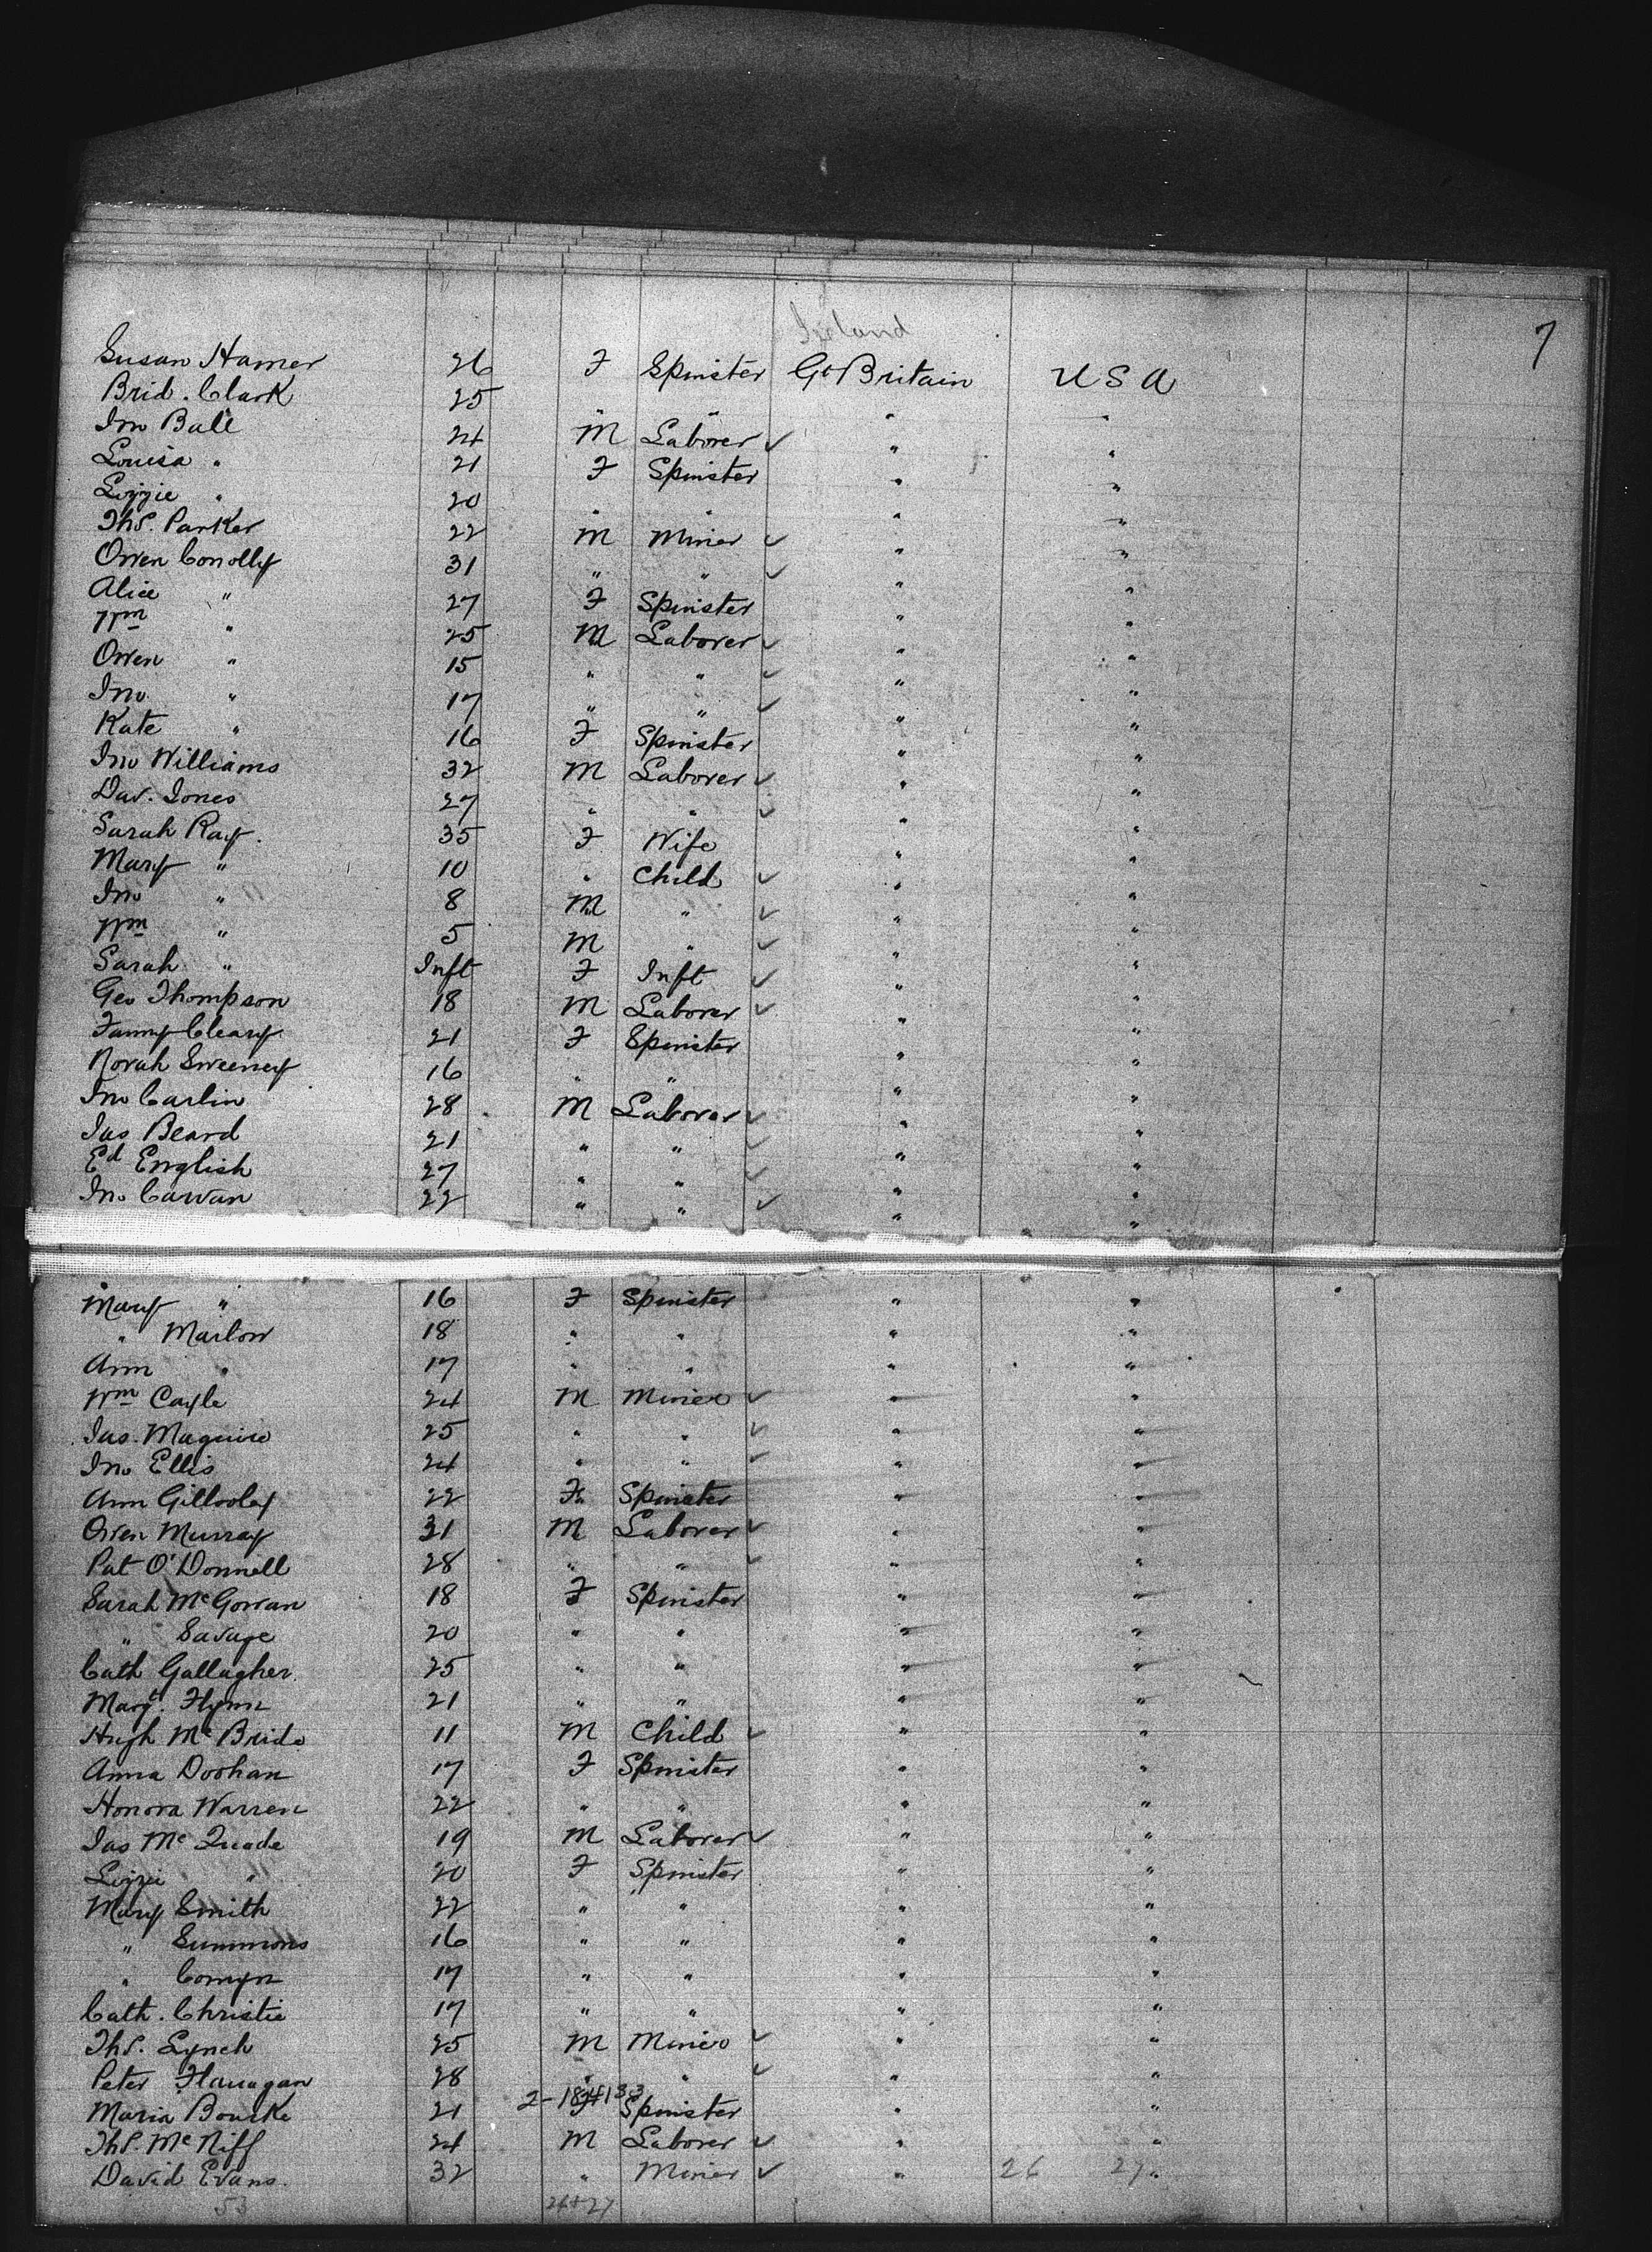 7
Ireland
Susan Hamer 26 F Spinster Gt Britain U S A
Brid. Clark 25 " " " "
Jno Ball 24 M Laborer ✓ " "
Louisa " 21 F Spinster " "
Lizzie " 20 " " " "
Ths. Parker 22 M Miner ✓ " "
Owen Conolly 31 " " ✓ " "
Alice " 27 F Spinster " "
Wm " 25 M Laborer ✓ " "
Owen " 15 " " ✓ " "
Jno. " 17 " " ✓ " "
Kate " 16 F Spinster " "
Jno Williams 32 M Laborer ✓ " "
Dav. Jones 27 " " ✓ " "
Sarah Ray. 35 F Wife " "
Mary " 10 " Child ✓ " "
Jno " 8 M " ✓ " "
Wm " 5 M " ✓ " "
Sarah " Inft F Inft ✓ " "
Geo Thompson 18 M Laborer ✓ " "
Fanny Cleary 21 F Spinster " "
Norah Sweeney 16 " " " "
Jno Carlin 28 M Laborer ✓ " "
Jas Beard 21 " " ✓ " "
Ed English 27 " " ✓ " "
Jno Carvan 22 " " ✓ " "
Mary " 16 F Spinster " "
" Marlow 18 " " " "
Ann " 17 " " " "
Wm Cayle 24 M Miner ✓ " "
Jas. Maguire 25 " " ✓ " "
Jno Ellis 24 " " ✓ " "
Ann Gillooley 22 F Spinster " "
Owen Murray 31 M Laborer ✓ " "
Pat O'Donnell 28 " " ✓ " "
Sarah McGowan 18 F Spinster " "
" Savage 20 " " " "
Cath Gallagher. 25 " " " "
Margt. Flynn 21 " " " "
Hugh McBride 11 M Child ✓ " "
Anna Doohan 17 F Spinster " "
Honora Warren 22 " " " "
Jas McQuade 19 M Laborer ✓ " "
Lizzie " 20 F Spinster " "
Mary Smith 22 " " " "
" Summons 16 " " " "
" Comyn 17 " " " "
Cath. Christie 17 " " " "
Ths. Lynch 25 M Miner ✓ " "
Peter Flanagan 28 " " ✓ " "
Maria Bourke 21 F Spinster " "
Ths. McNiff 24 M Laborer ✓ " "
David Evans. 32 " Miner ✓ " 26 27 "
53 26+27